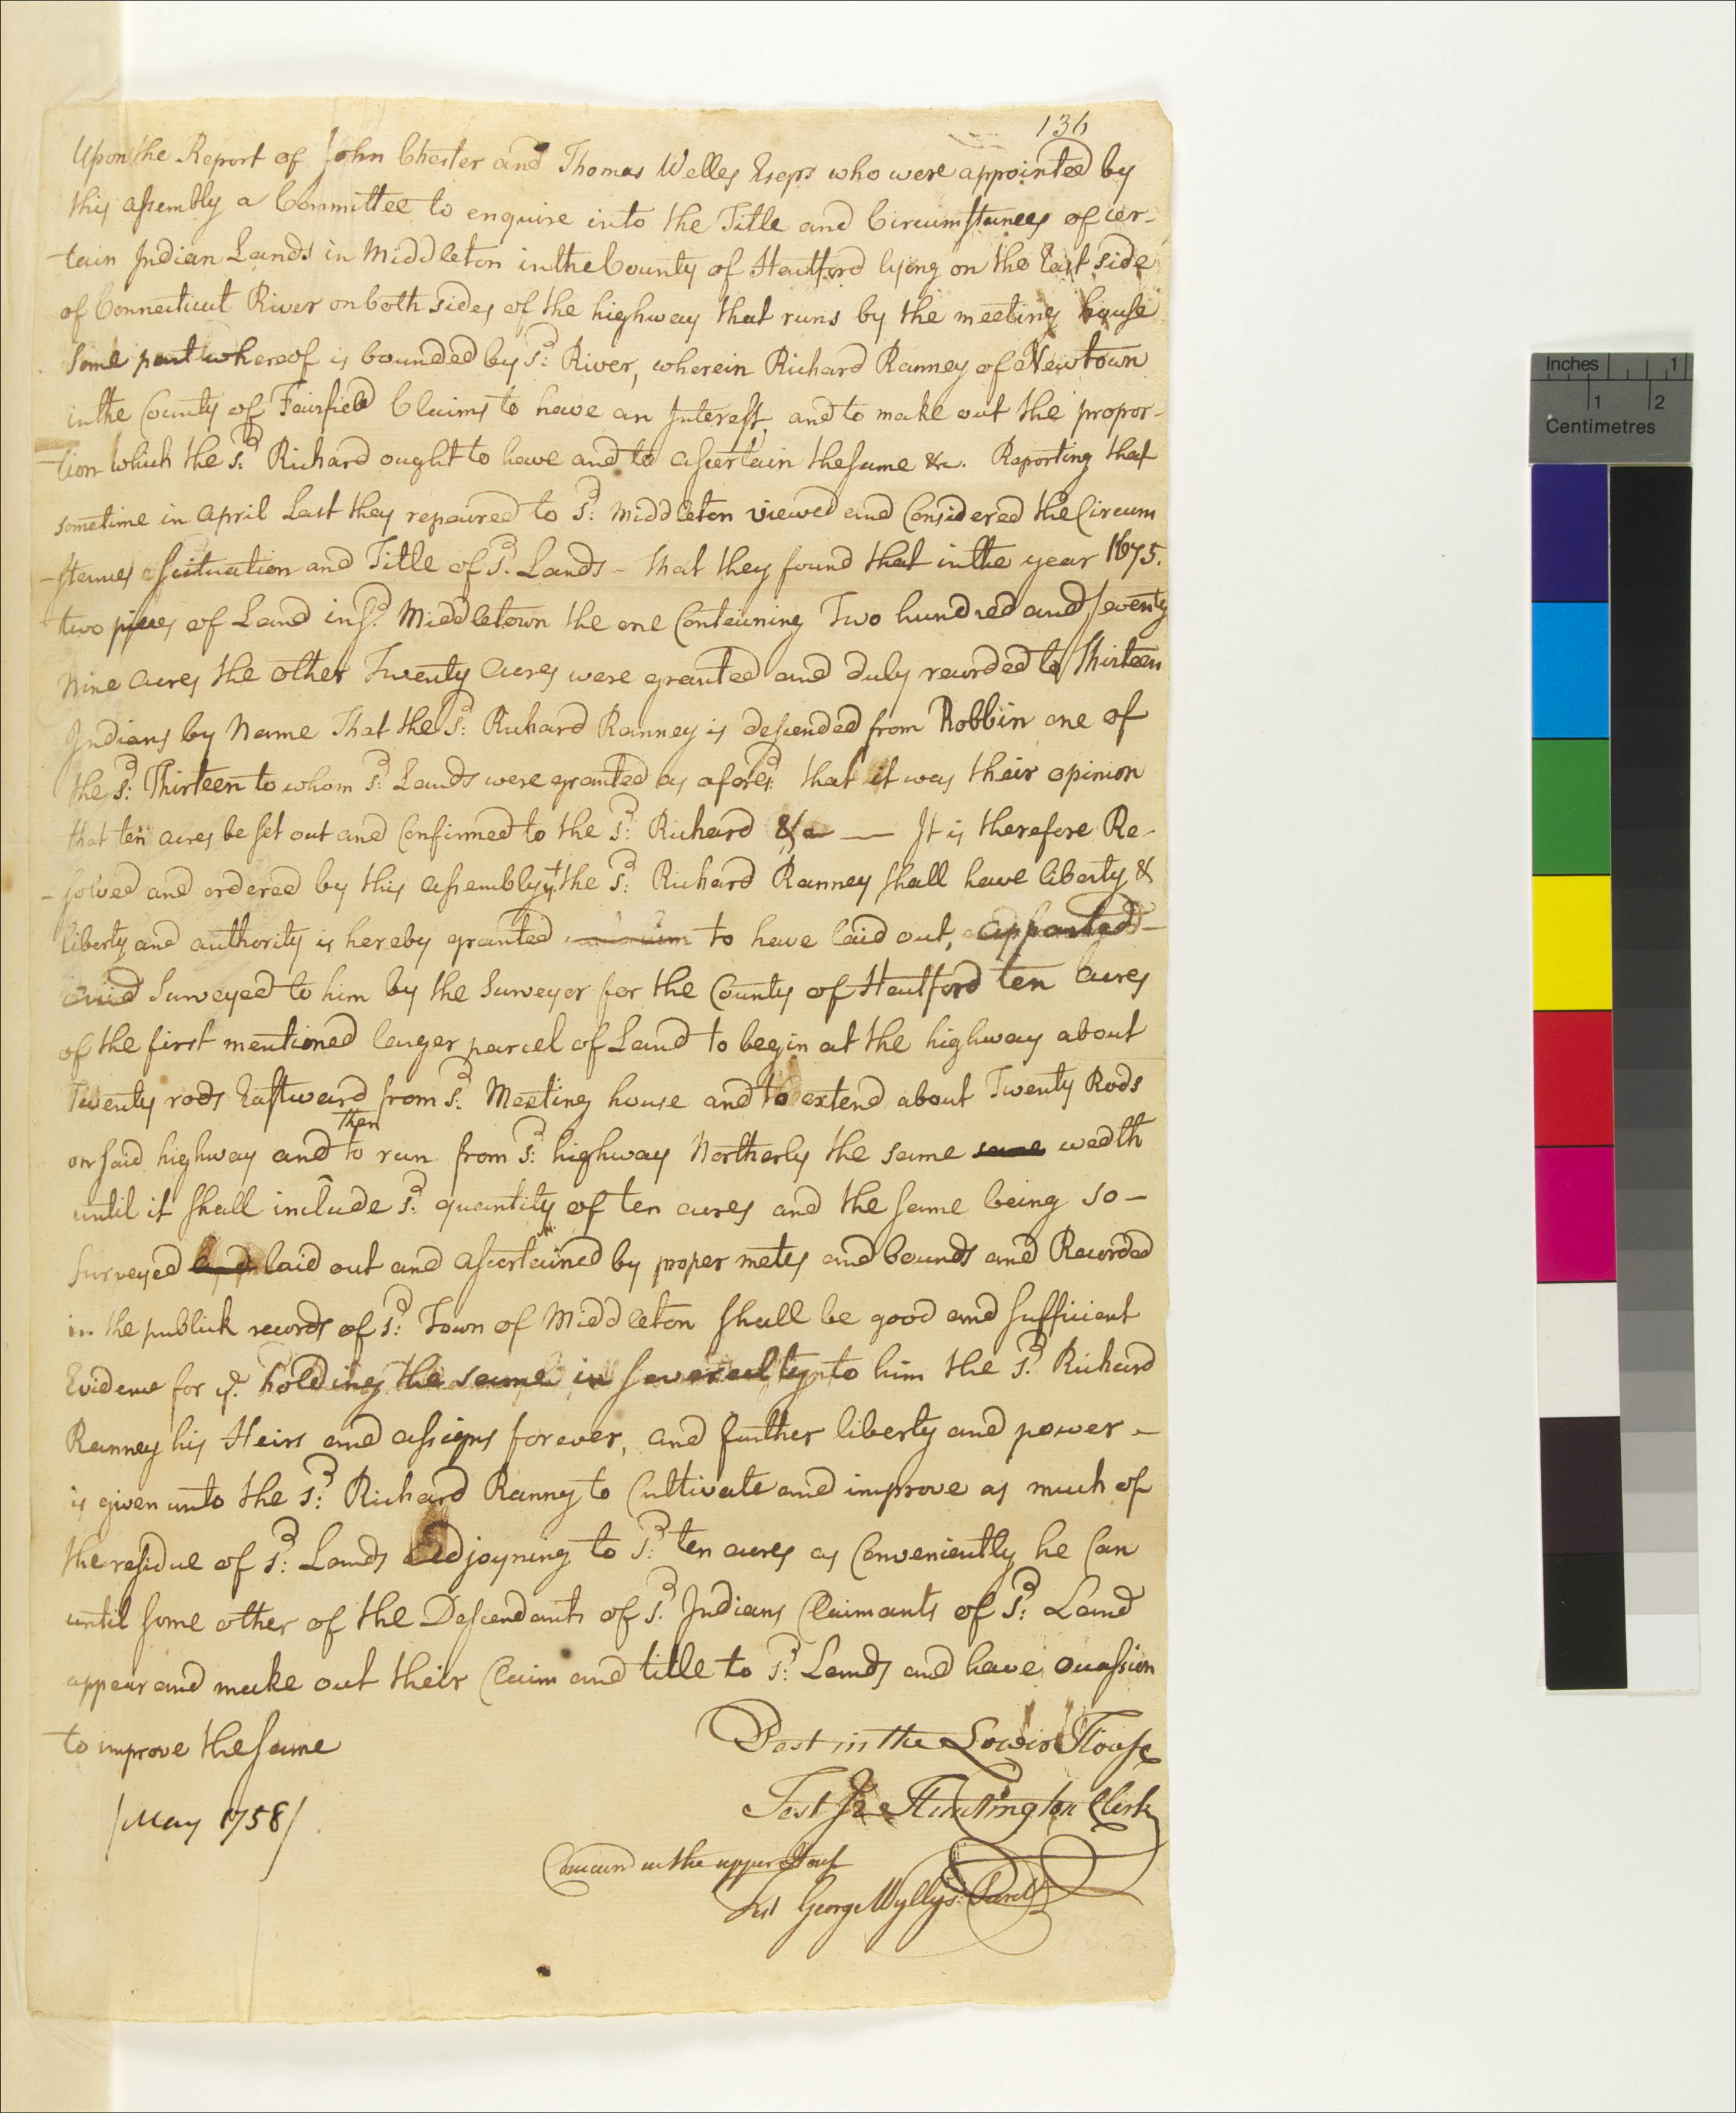 136
Upon the Report of John Chester and Thomas Welles Esqrs who were appointed by
this assembly a Committee to enquire into the Title and Circumstances of cer-
-tain Indian Lands in Middleton in the County of Hartford lying on the East side
of Connecticut River on both sides of the highway that runs by the meeting house
some part whereof is bounded by sd: River, wherein Richard Ranney of Newtown
in the County of Fairfield Claims to have an Interest, and to make out the propor-
-tion which the sd: Richard ought to have and to ascertain the same &c. Reporting that
sometime in April Last they repaired to sd: Middleton viewed and Considered the Circum
-stances scituation and Title of sd. Lands - that they found that in the year 1675.
two pieces of Land in sd. Middletown the one Containing Two hundred and seventy
Nine acres the other Twenty acres were granted and duly recorded to Thirteen
Indians by Name That the sd: Richard Ranney is descended from Robbin one of
the sd: Thirteen to whom sd: Lands were granted as aforesd: that it was their opinion
that ten acres be set out and Confirmed to the sd: Richard &c — It is therefore Re-
-solved and ordered by this assembly yt. the sd: Richard Ranney shall have liberty &
liberty and authority is hereby granted to have laid out, apparted -
and Surveyed to him by the Surveyor for the County of Hartford ten acres
of the first mentioned larger parcel of Land to begin at the highway about
Twenty rods Eastward from sd: Meeting house and to extend about Twenty Rods
on said highway and then to run from sd: highway Northerly the same same wedth
until it shall include sd: quantity of ten acres and the same being so -
surveyed and laid out and ascertained by proper metes and bounds and Recorded
in the publick records of sd: Town of Middleton shall be good and sufficient
Evidence for ye. holding the same in severalty to him the sd. Richard
Ranney his Heirs and assigns forever, and further liberty and power -
is given unto the sd: Richard Ranny to Cultivate and improve as much of
the residue of sd: Lands adjoyning to sd: ten acres as Conveniently he Can
until some other of the Descendants of sd. Indians Claimants of sd: Land
appear and make out their Claim and title to sd: Lands and have occassion
to improve the same
Past in the Lower House
Test Jz Huntington Clerk
/May 1758/
Concurd in the upper House
Test George Wyllys Secrety